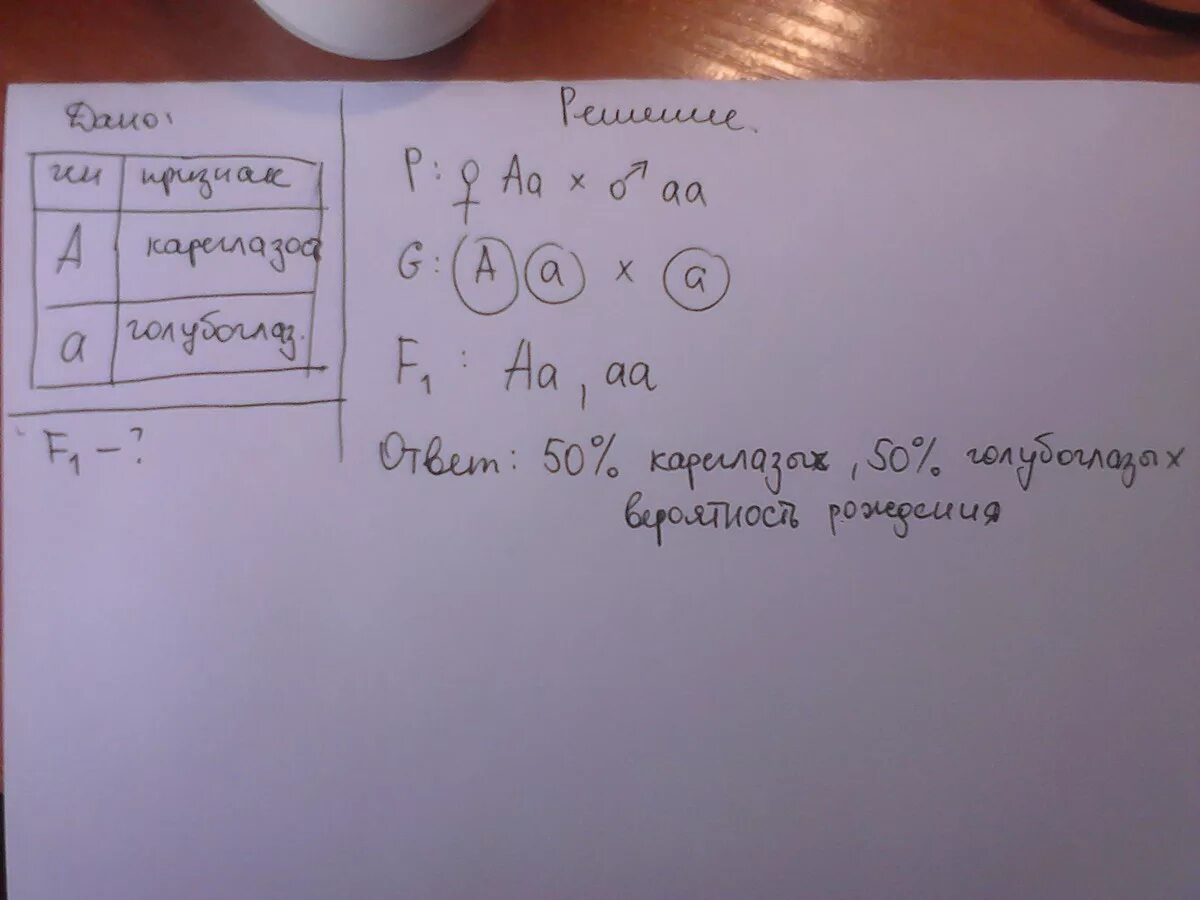 Дано:
ген признак
А кареглазоа
а голубоглаз.
F₁ – ?
Решение.
P: ♀ Аа × ♂ аа
G: А а × а
F₁ : Аа, аа
Ответ: 50% кареглазых, 50% голубоглазых
вероятность рождения